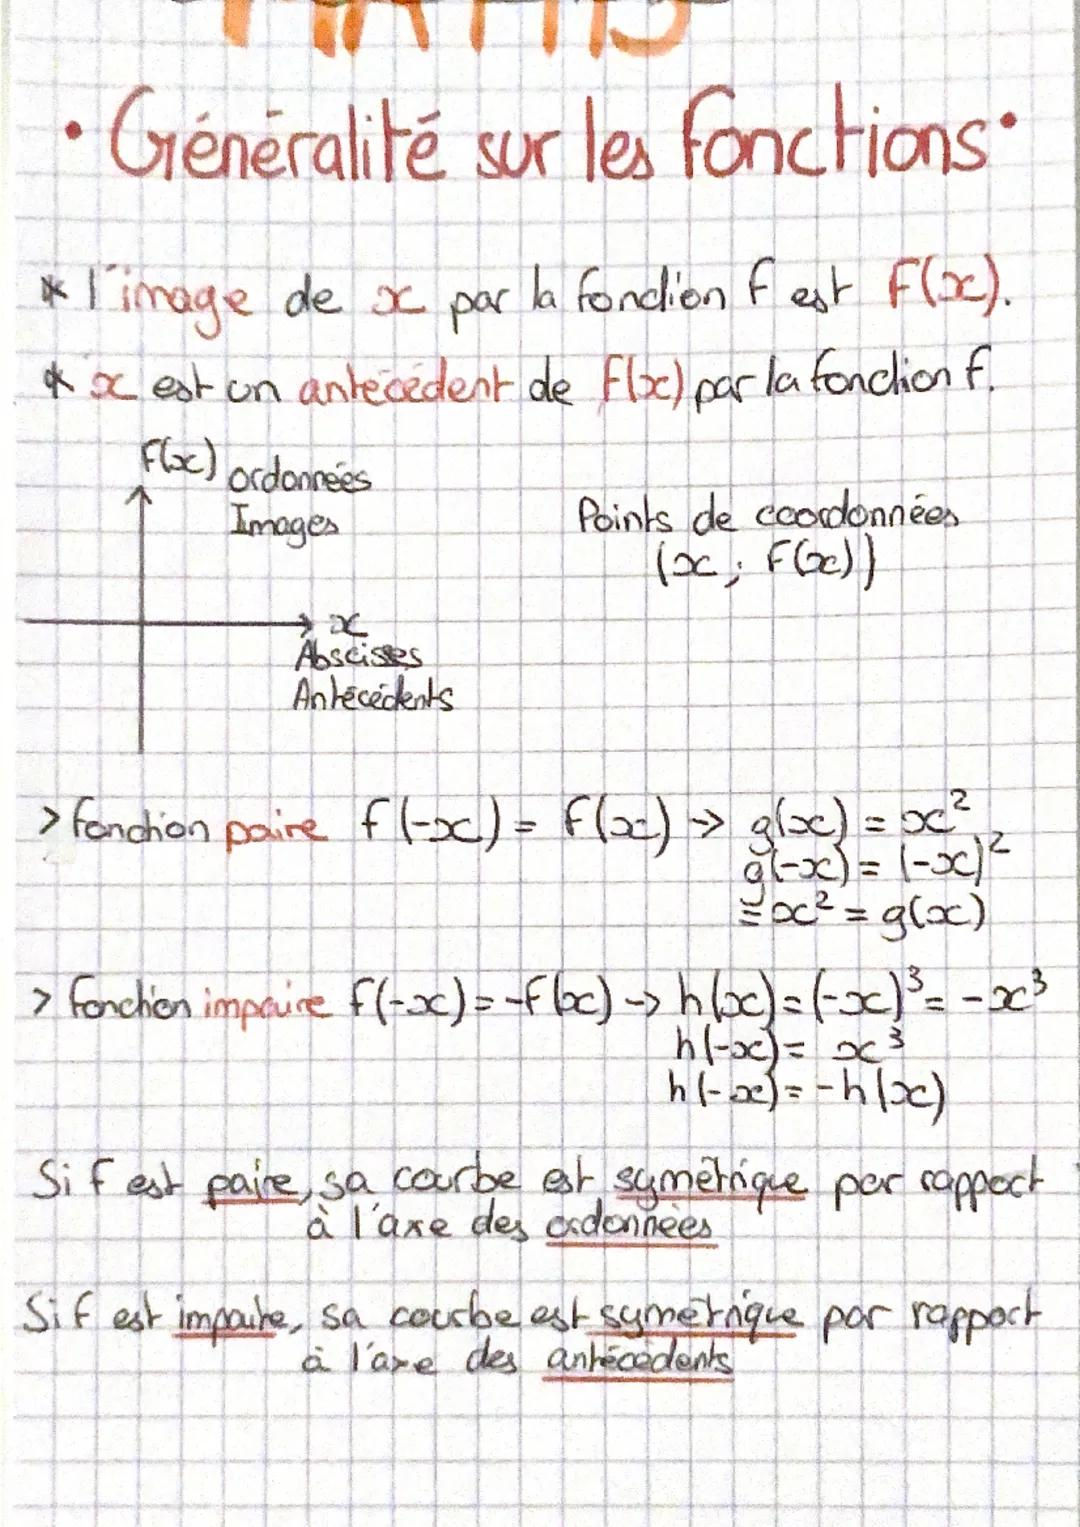 MATHS
• Généralité sur les fonctions •
* l'image de x par la fonction f est f(x).
* x est un antécédent de f(x) par la fonction f.
f(x) ordonnées
Images
Points de coordonnées
(x ; f(x))
x
Abscisses
Antécédents
> fonction paire f(-x) = f(x) → g(x) = x²
g(-x) = (-x)²
= x² = g(x)
> fonction impaire f(-x) = -f(x) → h(x) = (-x)³ = -x³
h(-x) = x³
h(-x) = -h(x)
Si f est paire, sa courbe est symétrique par rapport
à l'axe des ordonnées
Si f est impaire, sa courbe est symétrique par rapport
à l'axe des antécédents